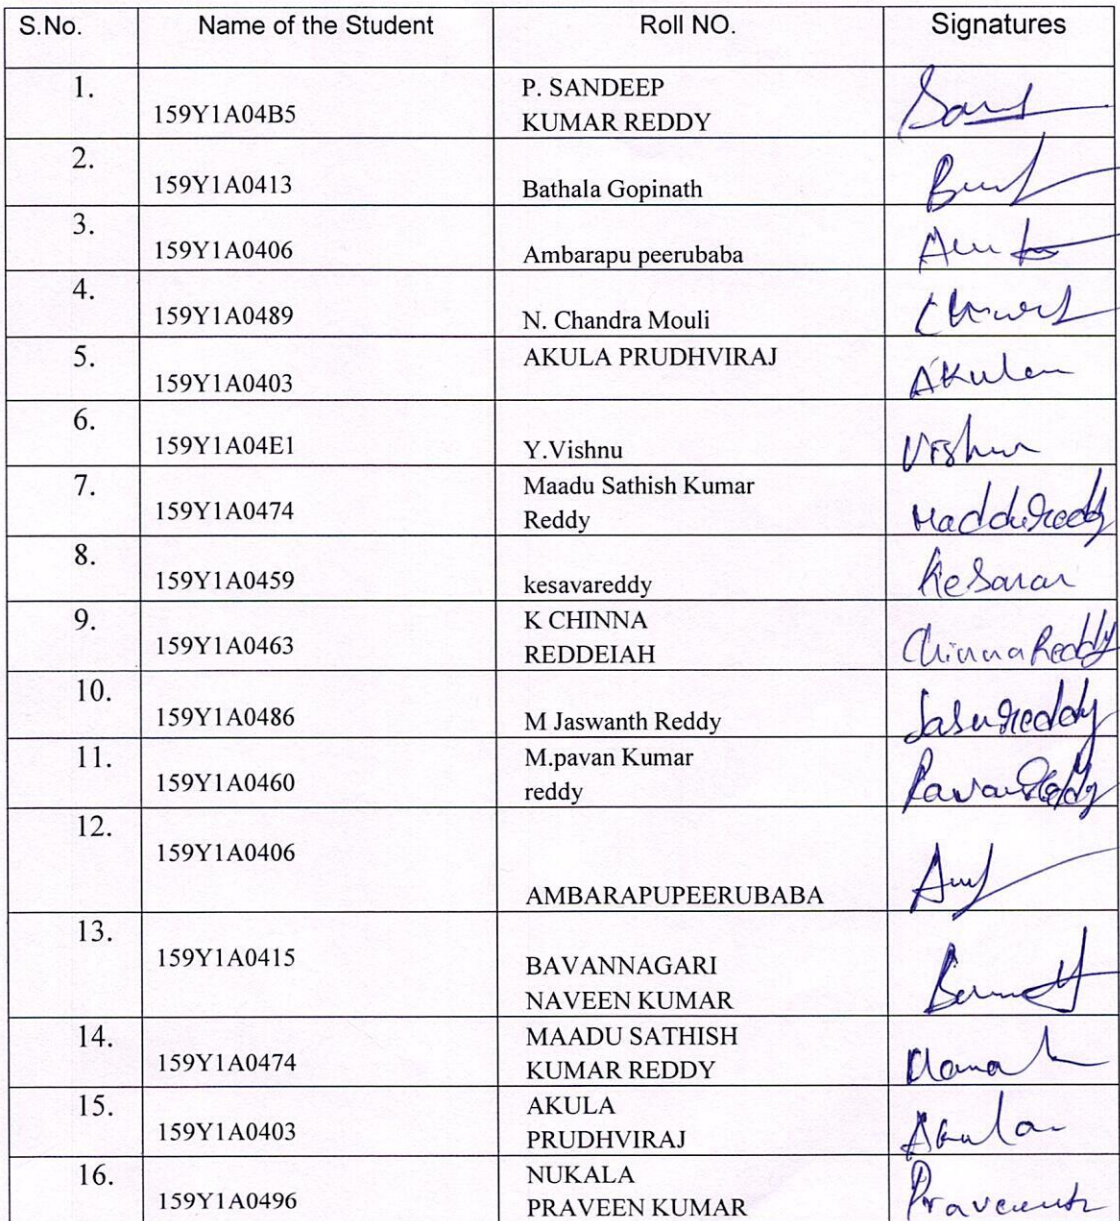 S.No. Name of the Student Roll NO. Signatures
1. 159Y1A04B5 P. SANDEEP
KUMAR REDDY
2. 159Y1A0413 Bathala Gopinath
3. 159Y1A0406 Ambarapu peerubaba
4. 159Y1A0489 N. Chandra Mouli
5. 159Y1A0403 AKULA PRUDHVIRAJ Akula
6. 159Y1A04E1 Y.Vishnu Vishnu
7. 159Y1A0474 Maadu Sathish Kumar
Reddy Maddureddy
8. 159Y1A0459 kesavareddy
9. 159Y1A0463 K CHINNA
REDDEIAH Chinna Reddy
10. 159Y1A0486 M Jaswanth Reddy Jasureddy
11. 159Y1A0460 M.pavan Kumar
reddy PavanReddy
12. 159Y1A0406 AMBARAPUPEERUBABA
13. 159Y1A0415 BAVANNAGARI
NAVEEN KUMAR
14. 159Y1A0474 MAADU SATHISH
KUMAR REDDY
15. 159Y1A0403 AKULA
PRUDHVIRAJ
16. 159Y1A0496 NUKALA
PRAVEEN KUMAR